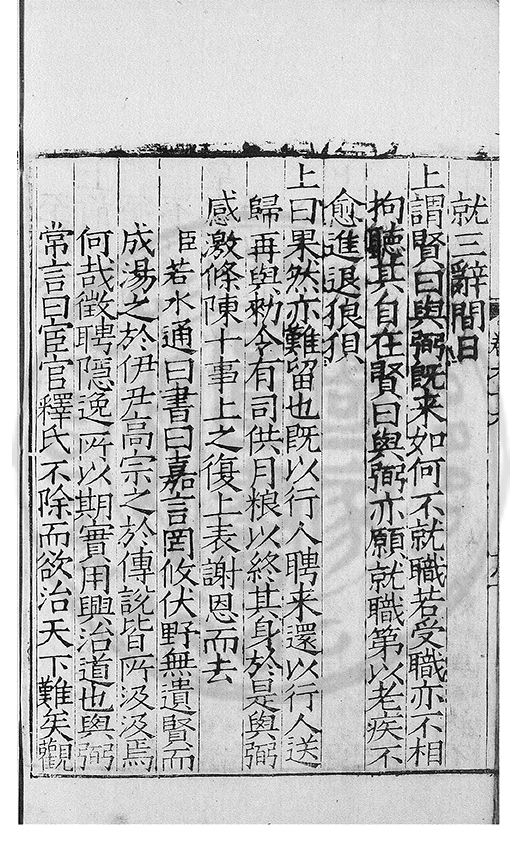 就三辭間日
上謂賢曰與弼既来如何不就職若受職亦不相
拘聽其自在賢曰與弼亦願就職第以老疾不
愈進退狼狽
上曰果然亦難留也既以行人聘来還以行人送
歸再與勑令有司供月粮以終其身於是與弼
感激條陳十事上之復上表謝恩而去
臣若水通曰書曰嘉言罔攸伏野無遺賢而
成湯之於伊尹高宗之於傳說皆所汲汲焉
何哉徵聘隱逸所以期實用興治道也與弼
常言曰宦官釋氏不除而欲治天下難矣觀